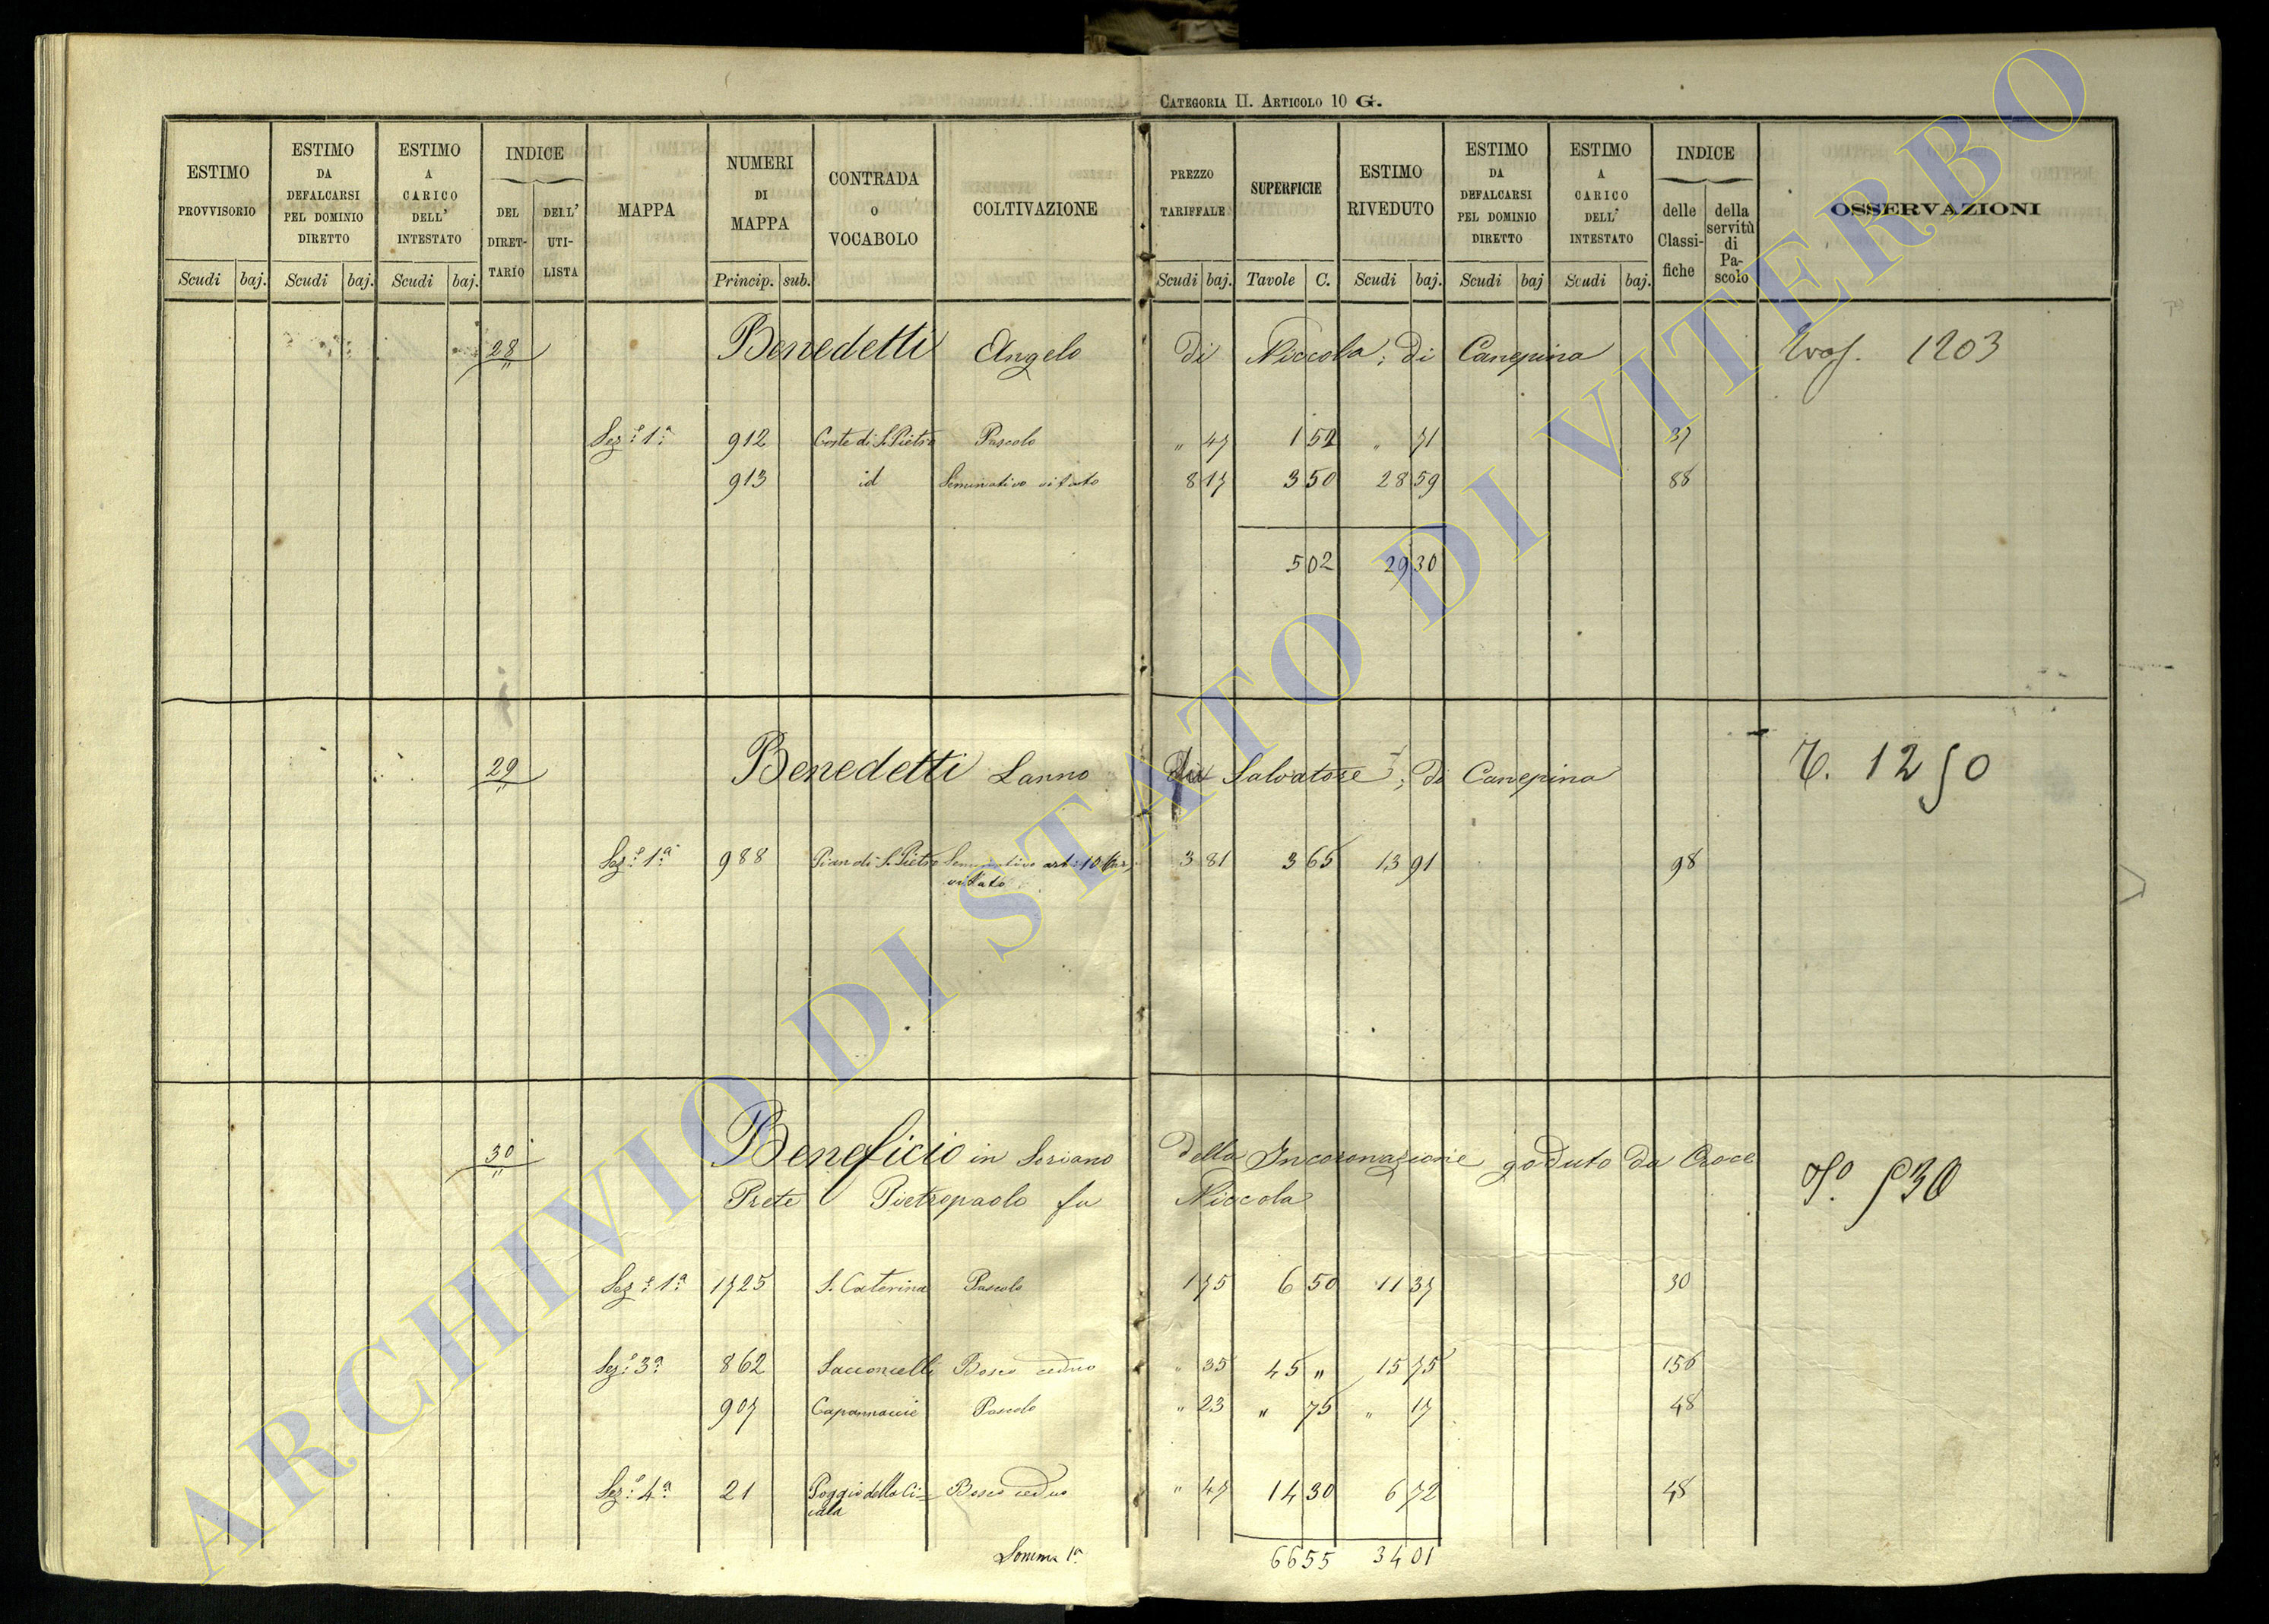 CATEGORIA II. ARTICOLO 10 G.
ESTIMO PROVVISORIO Scudi baj.
ESTIMO DA DEFALCARSI PEL DOMINIO DIRETTO Scudi baj.
ESTIMO A CARICO DELL' INTESTATO Scudi baj.
INDICE DEL DIRETTARIO DELL' UTILISTA
MAPPA
NUMERI DI MAPPA Princip. sub.
CONTRADA O VOCABOLO
COLTIVAZIONE
PREZZO TARIFFALE Scudi baj.
SUPERFICIE Tavole C.
ESTIMO RIVEDUTO Scudi baj.
ESTIMO DA DEFALCARSI PEL DOMINIO DIRETTO Scudi baj
ESTIMO A CARICO DELL' INTESTATO Scudi baj.
INDICE delle Classifiche della servitù di Pascolo
OSSERVAZIONI
28 Benedetti Angelo di Niccola; di Canepina 1203
Sez.e 1a 912 Coste di S. Pietro Pascolo " 47 1 52 " 71 37
913 id Seminativo vitato 8 17 3 50 28 59 88
5 02 29 30
29 Benedetti Sanno Salvatore; di Canepina T. 1250
Sez.e 1a 988 Pian di S. Pietro Seminativo vitato 3 81 3 65 13 91 98
30 Beneficio in Soriano della Incoronazione goduto da Croce 530
Prete Pietropaolo fu Niccola
Sez.e 1a 1725 S. Caterina Pascolo 1 75 6 50 11 37 30
Sez.e 3a 862 Sacconcelli Bosco ceduo " 35 45 " 15 75 156
907 Capannaccie Pascolo " 23 " 75 " 17 48
Sez.e 4a 21 Poggio della Cicala Bosco ceduo " 47 14 30 6 72 48
Somma 1a 66 55 34 01
ARCHIVIO DI STATO DI VITERBO